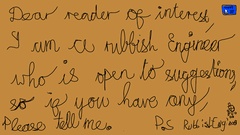 Dear reader of interest,
I am a rubbish Engineer
who is open to suggestions,
so if you have any,
Please tell me. P.S